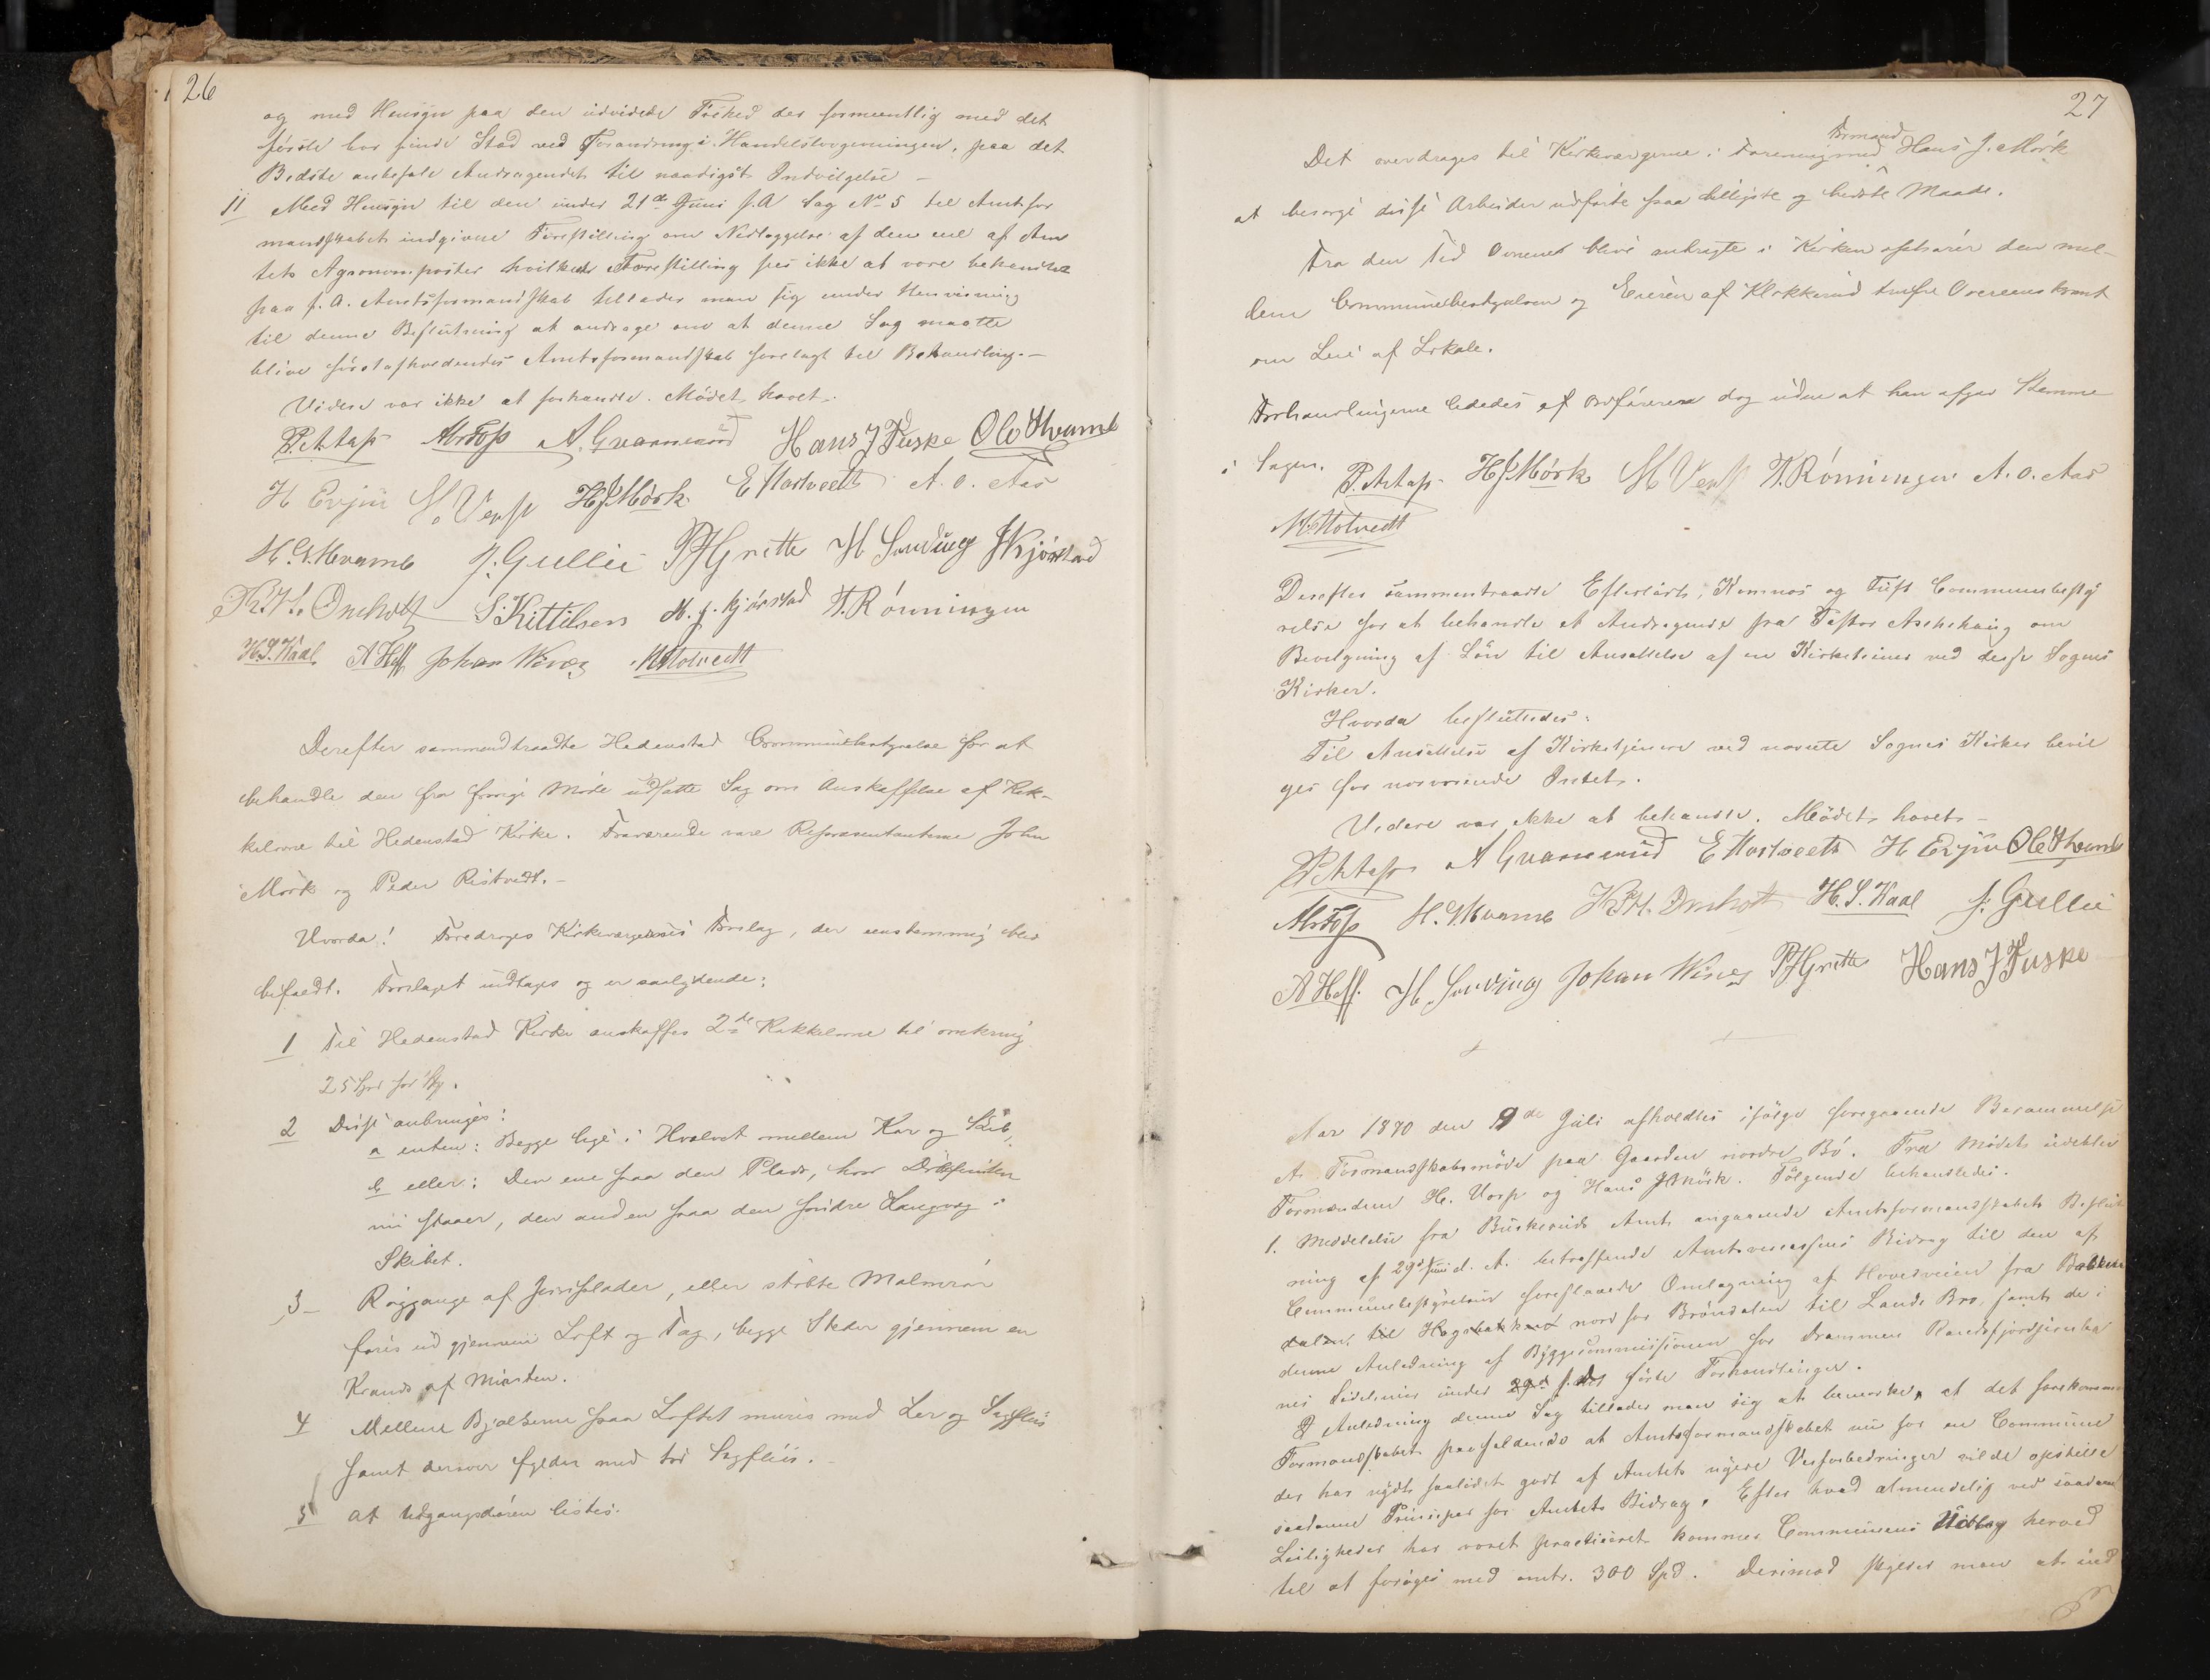 26
og med Hensyn paa den udvidede Frihed der formeentlig med det
første bør finde Sted ved Forandring i Handelslovgivningen, paa det
Bedste anbefale Andragendet til naadigst Indvilgelse –
11 Med Hensyn til den under 21de Juni f.A Sag No 5 til Amtsfor
mandskabet indgivne Forestilling om Nedlæggelse af den ene af Am
tets Agronomposter hvilken Forestilling sees ikke at være behandlet
paa f. A. Amtsformandskab tillader man sig under Henvisning
til denne Beslutning at andrage om at denne Sag maatte
blive førstafholdendes Amtsformandskab forelagt til Behandling. –
Videre var ikke at forhandle. Mødet hævet.
A. Gvammerud Hans J Tuske Ole Hvamb
H Evju H. Versp HJMørk E Hostveedt A. O. Aas
H. G. Hvamb J. Gullie PHGritte H. Sording JKjørstad
K. H. Omholt S. Kittilsen H. J. Kjørstad T. Rønningen
H. S. Kaal A Hoff Johan Wines MHotvedt
Derefter sammendtraadte Hedenstad Communebestyrelse for at
behandle den fra forrige Møde udsatte Sag om Anskaffelse af Kak-
kelovne til Hedenstad Kirke. Fraværende vare Repræsentanterne John
Mørk og Peder Ristvedt. –
Hvorda! Foredroges Kirkeværgernes Forslag, der eenstemmig blev
bifaldt. Forslaget indtages og er saalydende:
1 Til Hedenstad Kirke anskaffes 2de Kakkelovne til omkring
25 Spd for Stk.
2 Disse anbringes:
a enten: Begge lige i Hvælvet mellem Kor og Skib,
b eller: Den ene paa den Plads, hvor Døbefonten
nu staaer, den anden paa den søndre Langvæg i
Skibet.
3 – Røggange af Jernplader, eller støbte Malmrør
føres ud gjennem Loft og Tag, begge Steder gjennem en
Krands af Mursten.
4 Mellem Bjælkerne paa Loftet mures med Ler og Sagfliis
samt derover fyldes med tør Sagfliis.
5 at Udgangsdøren listes.
27
Det overdrages til Kirkeværgerne i Forening med Formand Hans J. Mørk
at besørge disse Arbeider udførte paa billigste og bedste Maade.
Fra den Tid Ovnene blive anbragte i Kirken ophører den mel-
lem Communebestyrelsen og Eieren af Klokkerud trufne Overeenskomst
om Leie af Lokale.
Forhandlingerne lededes af Ordføreren dog uden at han afgav Stemme
i Sagen. HJMørk H Versp T. Rønningen A. O. Aas
MHotvedt
Derefter sammentraadte Efteløts, Komnæs og Tufts Communebesty
relse for at behandle et Andragende fra Pastor Aschehoug om
Bevilgning af Løn til Ansættelse af en Kirketjener ved disse Sognes
Kirker.
Hvorda besluttedes:
Til Ansættelse af Kirketjenere ved nævnte Sognes Kirker bevil
ges for nærværende Intet.
Videre var ikke at behandle. Mødet hævet –
A Gvammerud E Hostveedt H Evju Ole Hvamb
H. G. Hvamb K. H. Omholt H. S. Kaal J. Gullie
A Hoff. H. Sording Johan Wines PHGritte Hans J Tuske
Aar 1870 den 9de Juli afholdtes ifølge foregaaende Berammelse
et Formandskabsmøde paa Gaarden nordre Bø. Fra Mødet udeblev
Formændene H. Versp og Hans J Mørk. Følgende behandledes.
1. Meddelelse fra Buskeruds Amt angaaende Amtsformandskabets Beslut
ning af 29de Juni d. A. betræffende Amtsveicassens Bidrag til den af
Communebestyrelsen foreslaaede Omlægning af Hovedveien fra Bakke
dalen, til Hagsbakken nord for Brøndalen til Lands Bro, samt de i
denne Anledning af Byggecommissionen for Drammen Randsfjordjernba
nes Sidelinier under førte Forhandlinger.
I Anledning denne Sag tillader man sig at bemærke, at det forekommer
Formandskabet paafaldende at Amtsformandskabet nu for en Commune
der har nydt saalidet godt af Amtets nyere Veiforbedringer vilde opstille
saadanne Principer for Amtets Bidrag. Efter hvad almindelig ved saadanne
Leiligheder har været practiceret kommer Communens Udlæg herved
til at forøges med omtr. 300 Spd. Derimod skylder man at ind